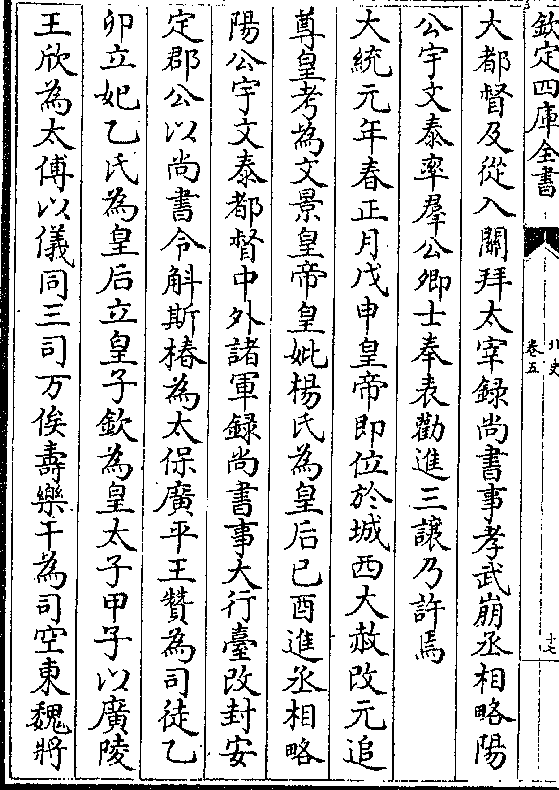 欽定四庫全書
北史
卷五
十七
大都督及從入關拜太宰録尚書事孝武崩丞相略陽
公宇文泰率羣公卿士奉表勸進三讓乃許焉
大統元年春正月戊申皇帝即位於城西大赦改元追
尊皇考為文景皇帝皇妣楊氏為皇后已酉進丞相略
陽公宇文泰都督中外諸軍録尚書事大行臺改封安
定郡公以尚書令斛斯椿為太保廣平王贊為司徒乙
卯立妃乙氏為皇后立皇子欽為皇太子甲子以廣陵
王欣為太傅以儀同三司万俟壽樂干為司空東魏將